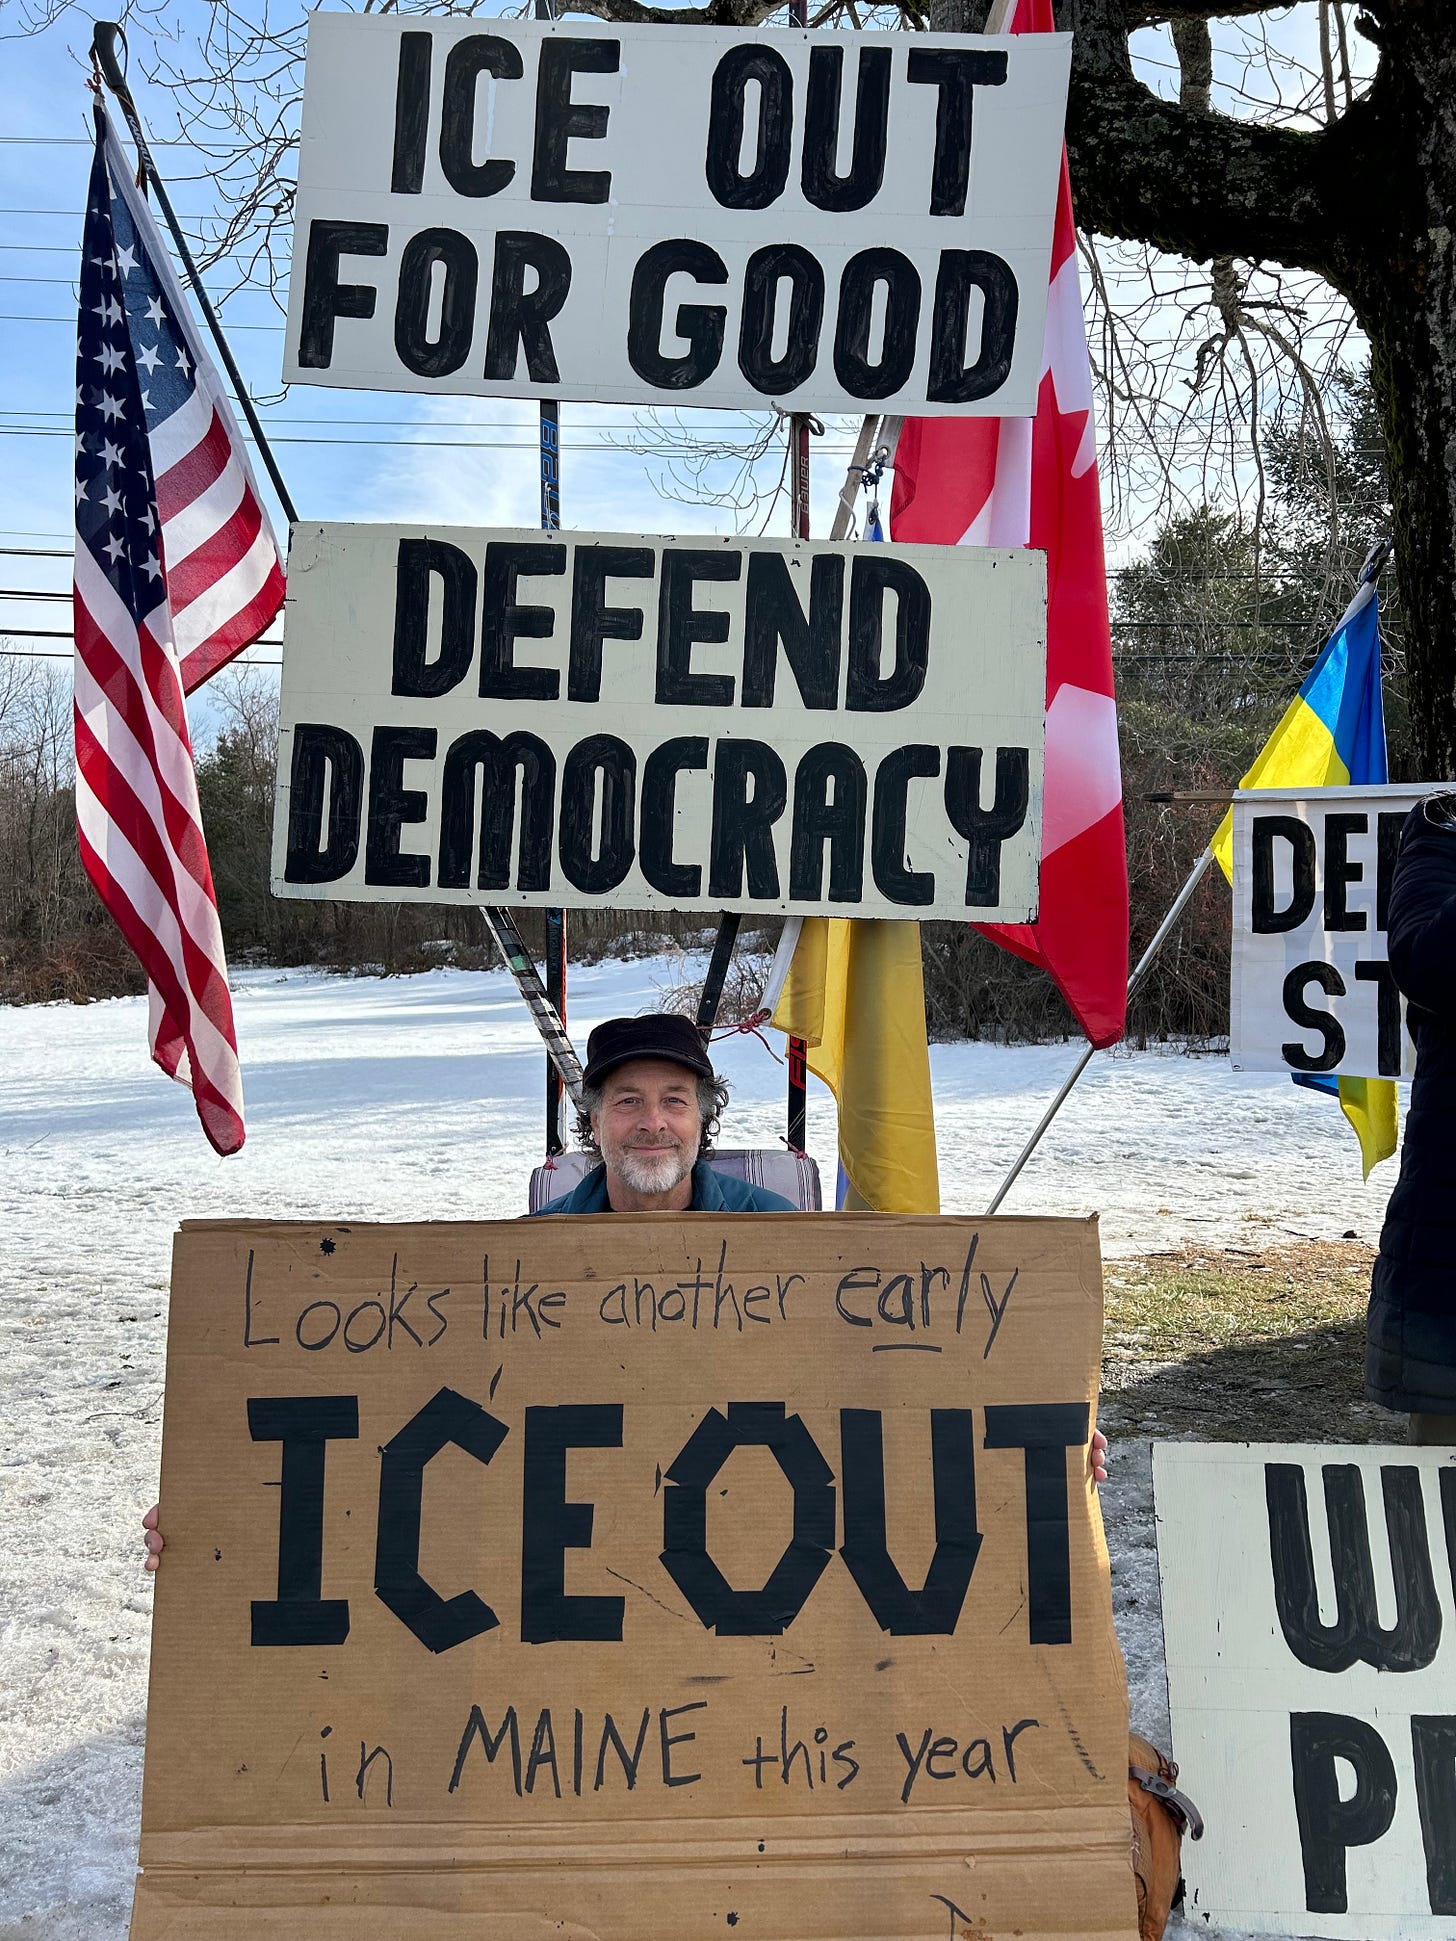 ICE OUT
FOR GOOD
Bauer
DEFEND
DEMOCRACY
Looks like another early
ICE OUT
in MAINE this year